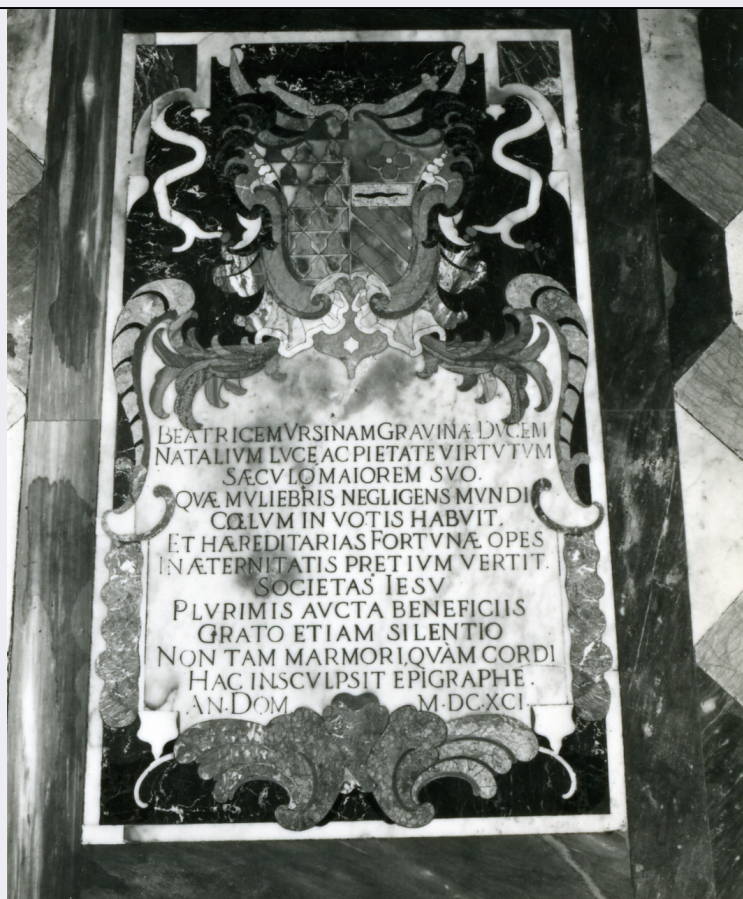 BEATRICEM VRSINAM GRAVINÆ DVCEM
NATALIVM LVCE AC PIETATE VIRTVTVM
SÆCVLO MAIOREM SVO.
QVÆ MVLIEBRIS NEGLIGENS MVNDI
CŒLVM IN VOTIS HABVIT.
ET HÆREDITARIAS FORTVNÆ OPES
IN ÆTERNITATIS PRETIVM VERTIT.
SOCIETAS IESV
PLVRIMIS AVCTA BENEFICIIS
GRATO ETIAM SILENTIO
NON TAM MARMORI, QVÀM CORDI
HAC INSCVLPSIT EPIGRAPHE.
AN·DOM M·DC·XCI·